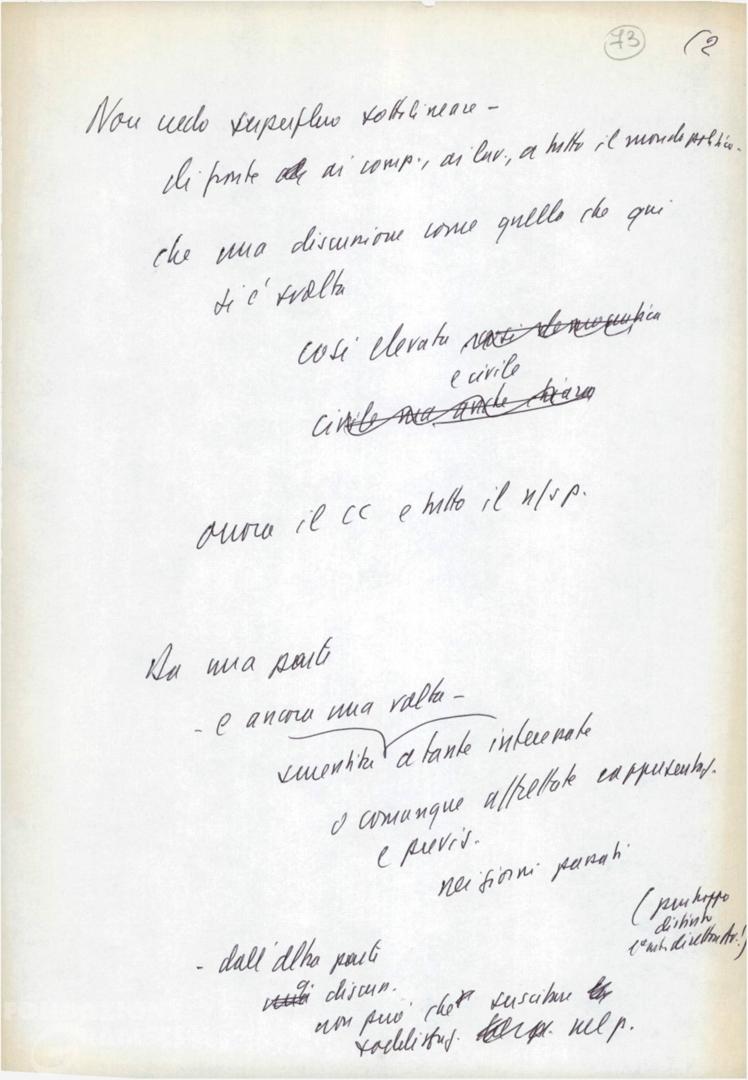 73 (2
Non credo superfluo sottolineare -
di fronte ai comp., ai lav., a tutto il mondo politico -
che una discussione come quella che qui
si è svolta
così elevata così democratica
e civile
civile ma anche chiara
onora il CC e tutto il n/s p.
Da una parte
- e ancora una volta -
smentita a tante interessate
o comunque affrettate rappresentaz.
e previs.
nei giorni passati
(purtroppo
distinto
- dall'altra parte
discuss.
non può che suscitare
soddisfaz. nel p.